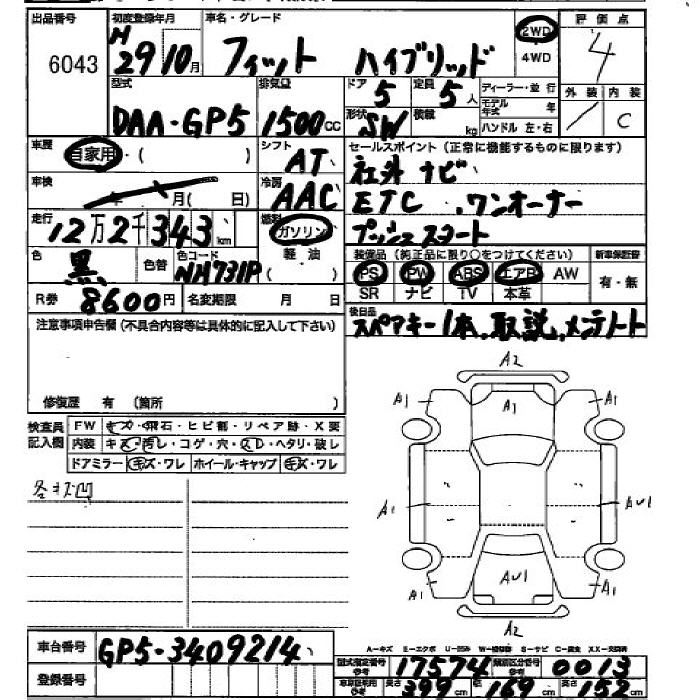 出品番号 初度登録年月 車名・グレード 評価点
6043 H29 10月 フィット ハイブリッド 2WD 4WD 4
型式 排気量 ドア 定員 ディーラー・並行 外装 内装
DAA・GP5 1500cc 5 5人 モデル年式 年 / C
形状 SW 積載 kg ハンドル 左・右
車歴 自家用・( ) シフト AT セールスポイント (正常に機能するものに限ります)
車検 年 月( 日) 冷房 AAC 社外ナビ
ETC.ワンオーナー
走行 12万2千343km 燃料 ガソリン プッシュスタート
色 黒 色替 色コード NH731P 軽油 ( )
装備品 (純正品に限り○をつけてください) 新車保証書
PS PW ABS エアB AW 有・無
SR ナビ TV 本革
R券 8600円 名変期限 月 日
後日品 スペアキー1本、取説、メンテノート
注意事項申告欄(不具合内容等は具体的に記入して下さい)
修復歴 有 (箇所 )
検査員記入欄 FW キズ・飛石・ヒビ割・リペア跡・X要
内装 キズ・汚し・コゲ・穴・スレ・ヘタリ・破し
ドアミラー キズ・ワレ ホイール・キャップ キズ・ワレ
各キズ凹
A2
A1 A1 A1
A1 AU1
A1 AU1 A1
A2
車台番号 GP5-3409214
登録番号
A−キズ E−エクボ U−凹み W−補修跡 S−サビ C−腐食 XX−交換済
型式指定番号 参考 17574 類別区分番号 参考 0013
車両諸元 参考 長さ 399cm 幅 169cm 高さ 152cm